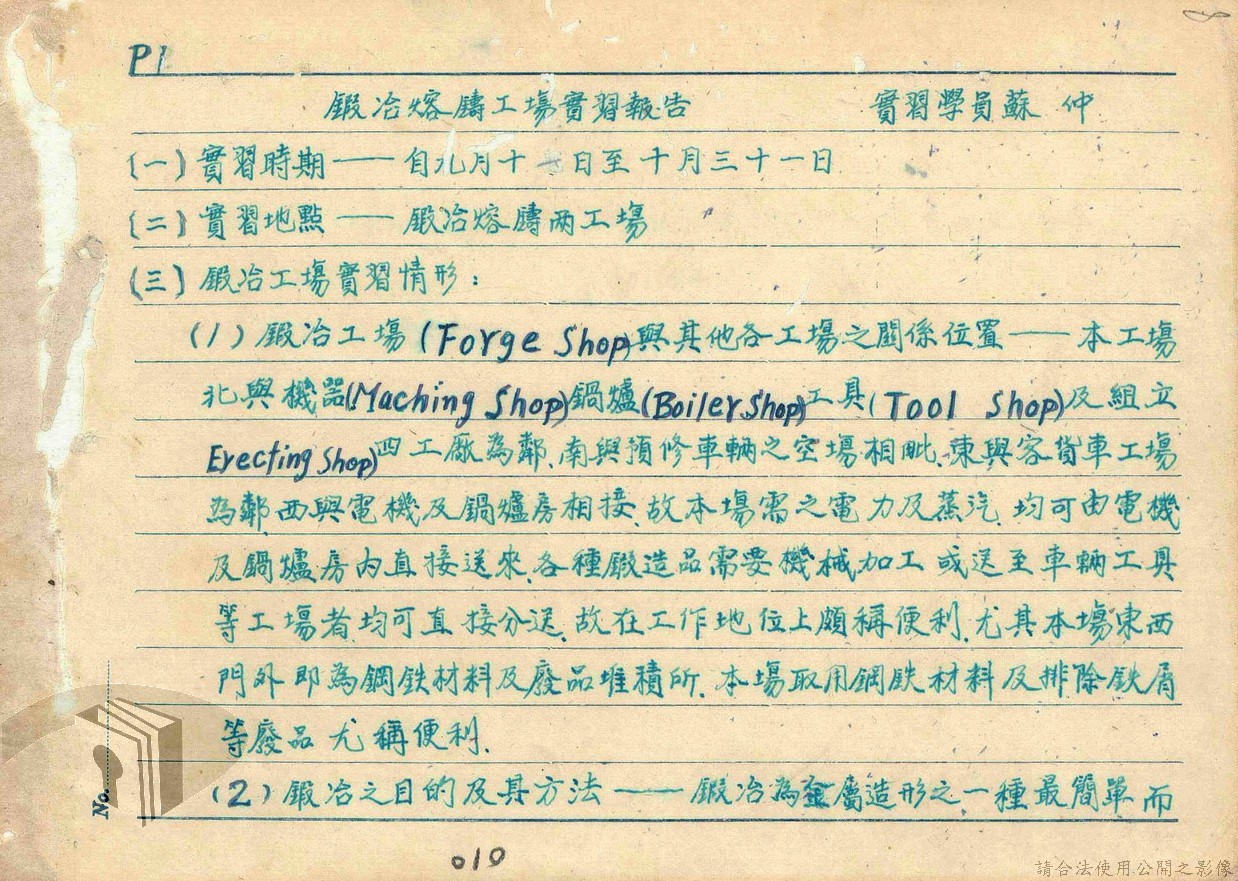 P1
鍛冶熔鑄工場實習報告 實習學員蘇 仲
(一) 實習時期 —— 自九月十 日至十月三十一日
(二) 實習地點 —— 鍛冶熔鑄兩工場
(三) 鍛冶工場實習情形：
(1) 鍛冶工場 (Forge Shop)與其他各工場之關係位置 —— 本工場
北與機器(Maching Shop)鍋爐(Boiler Shop)工具(Tool Shop)及組立
Erecting Shop)四工廠為鄰、南與預修車輛之空場相毗、東與客貨車工場
為鄰西與電機及鍋爐房相接、故本場需之電力及蒸汽、均可由電機
及鍋爐房內直接送來、各種鍛造品需要機械加工或送至車輛工具
等工場者、均可直接分送、故在工作地位上頗稱便利、尤其本場東西
門外即為鋼鉄材料及廢品堆積所、本場取用鋼鉄材料及排除鉄屑
等廢品尤稱便利、
(2) 鍛冶之目的及其方法 —— 鍛冶為金屬造形之一種最簡單而
No.
010
請合法使用公開之影像